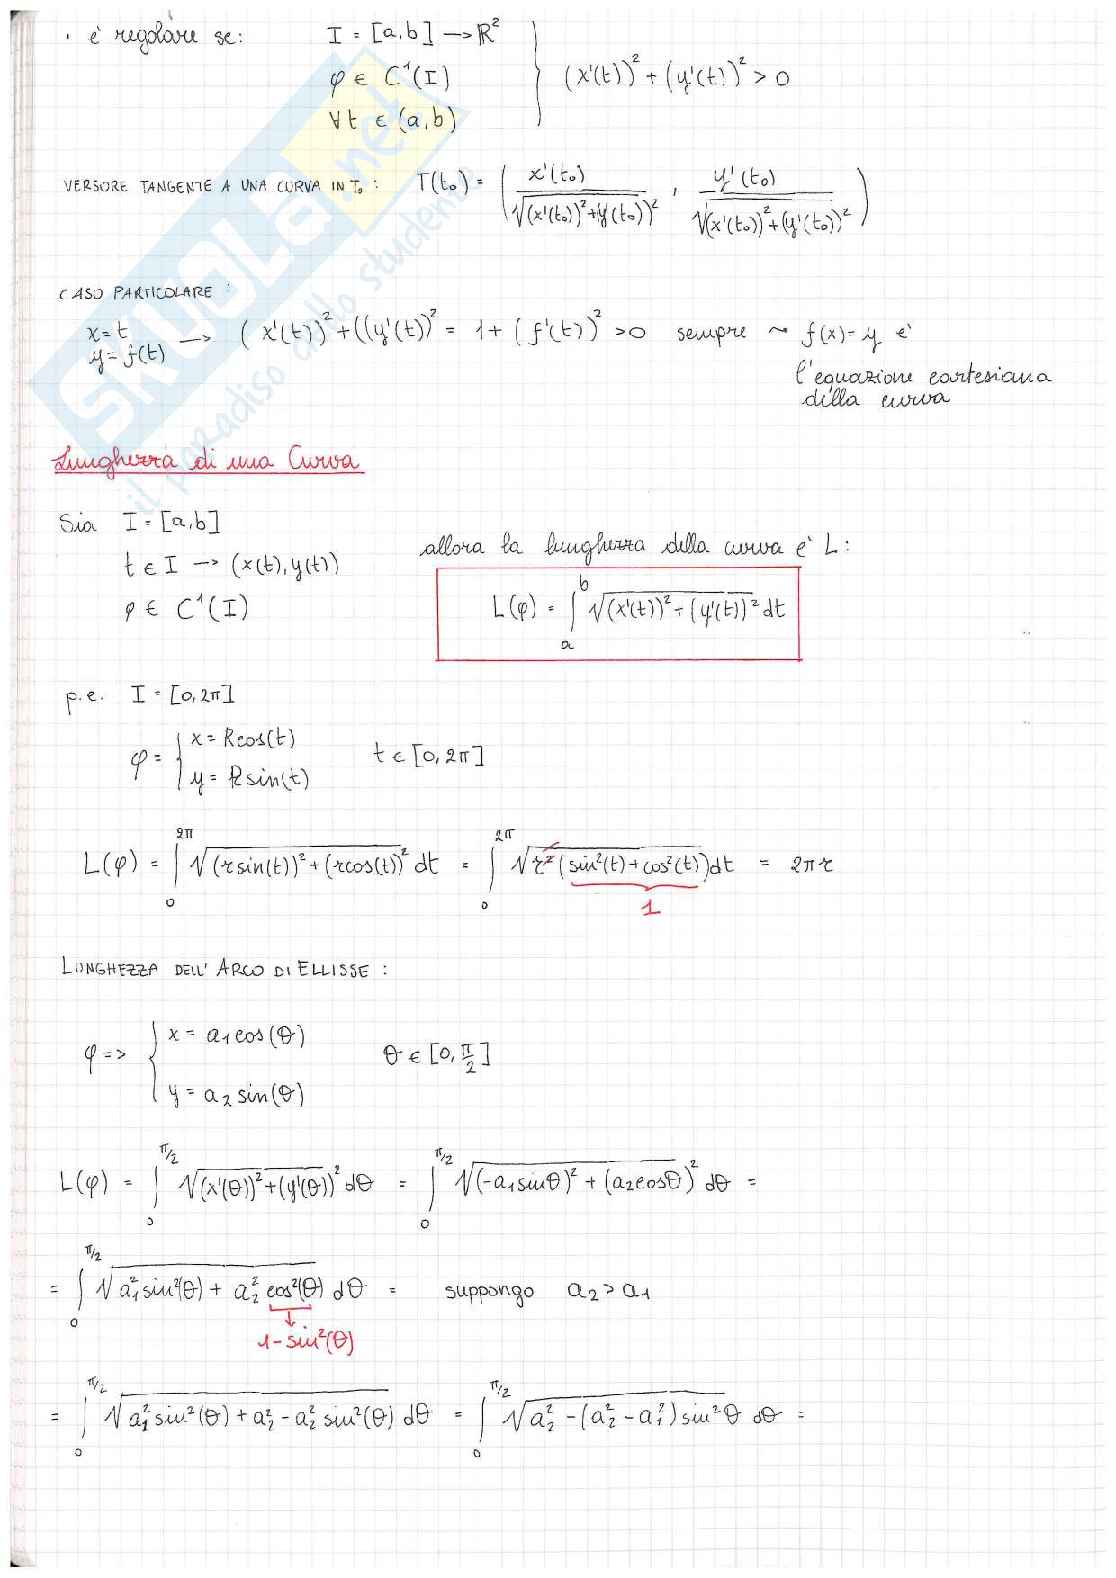 · è regolare se: I = [a,b] → ℝ²
φ ∈ C¹(I) } (x'(t))² + (y'(t))² > 0
∀t ∈ (a,b)
VERSORE TANGENTE A UNA CURVA IN T₀ : T(t₀) = ( x'(t₀) / √(x'(t₀))²+(y'(t₀))² , y'(t₀) / √(x'(t₀))²+(y'(t₀))² )
CASO PARTICOLARE :
x = t
y = f(t) → (x'(t))² + ((y'(t))² = 1 + (f'(t))² > 0 sempre ~ f(x) = y è
l'equazione cartesiana
della curva
Lunghezza di una Curva
Sia I = [a,b]
t ∈ I → (x(t), y(t))
φ ∈ C¹(I)
allora la lunghezza della curva è L :
L(φ) = ∫ₐᵇ √(x'(t))² + (y'(t))² dt
p.e. I = [0, 2π]
φ = { x = Rcos(t)
y = Rsin(t) t ∈ [0, 2π]
L(φ) = ∫₀^2π √(r sin(t))² + (r cos(t))² dt = ∫₀^2π √r² (sin²(t) + cos²(t)) dt = 2πr
1
LUNGHEZZA DELL' ARCO DI ELLISSE :
φ => { x = a₁cos(θ)
y = a₂ sin(θ) θ ∈ [0, π/2]
L(φ) = ∫₀^π/2 √(x'(θ))² + (y'(θ))² dθ = ∫₀^π/2 √(-a₁sinθ)² + (a₂cosθ)² dθ =
= ∫₀^π/2 √a₁² sin²(θ) + a₂² cos²(θ) dθ = suppongo a₂ > a₁
1 - sin²(θ)
= ∫₀^π/2 √a₁² sin²(θ) + a₂² - a₂² sin²(θ) dθ = ∫₀^π/2 √a₂² - (a₂² - a₁²) sin²θ dθ =
SKUOLA.net
il paradiso dello studente